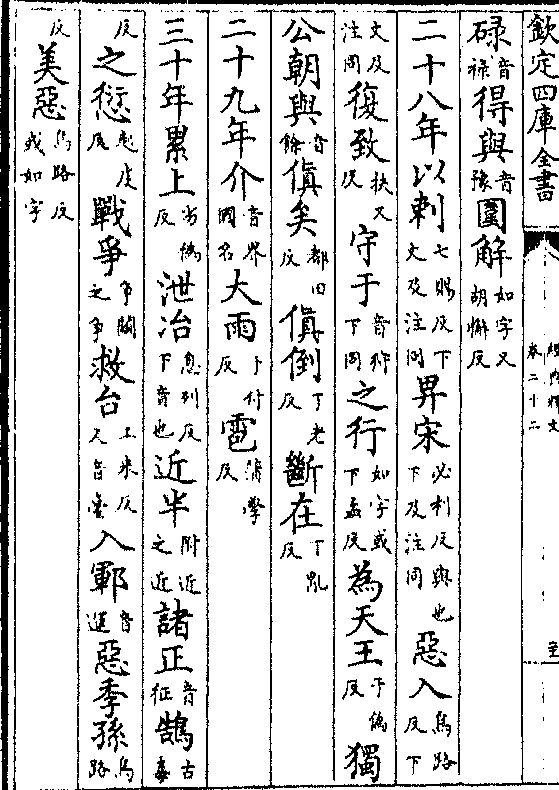 欽定四庫全書
經典釋文
卷二十二
碌音祿得與音豫圍解如字又胡懈反
二十八年以刺七賜反下文及注同畀宋必利反與也下及注同惡入烏路反下
文及注同復致扶又反守于音狩下同之行如字或下孟反為天王于偽反獨
公朝與音餘傎矣都田反傎倒丁老反斷在丁亂反
二十九年介音界國名大雨于付反雹蒲學反
三十年累上劣偽反泄冶息列反下音也近半附近之近諸正音征鵠古毒
反之愆起虔反戰爭爭鬬之爭救台土來反又音臺入鄆音運惡季孫烏路
反美惡烏路反或如字